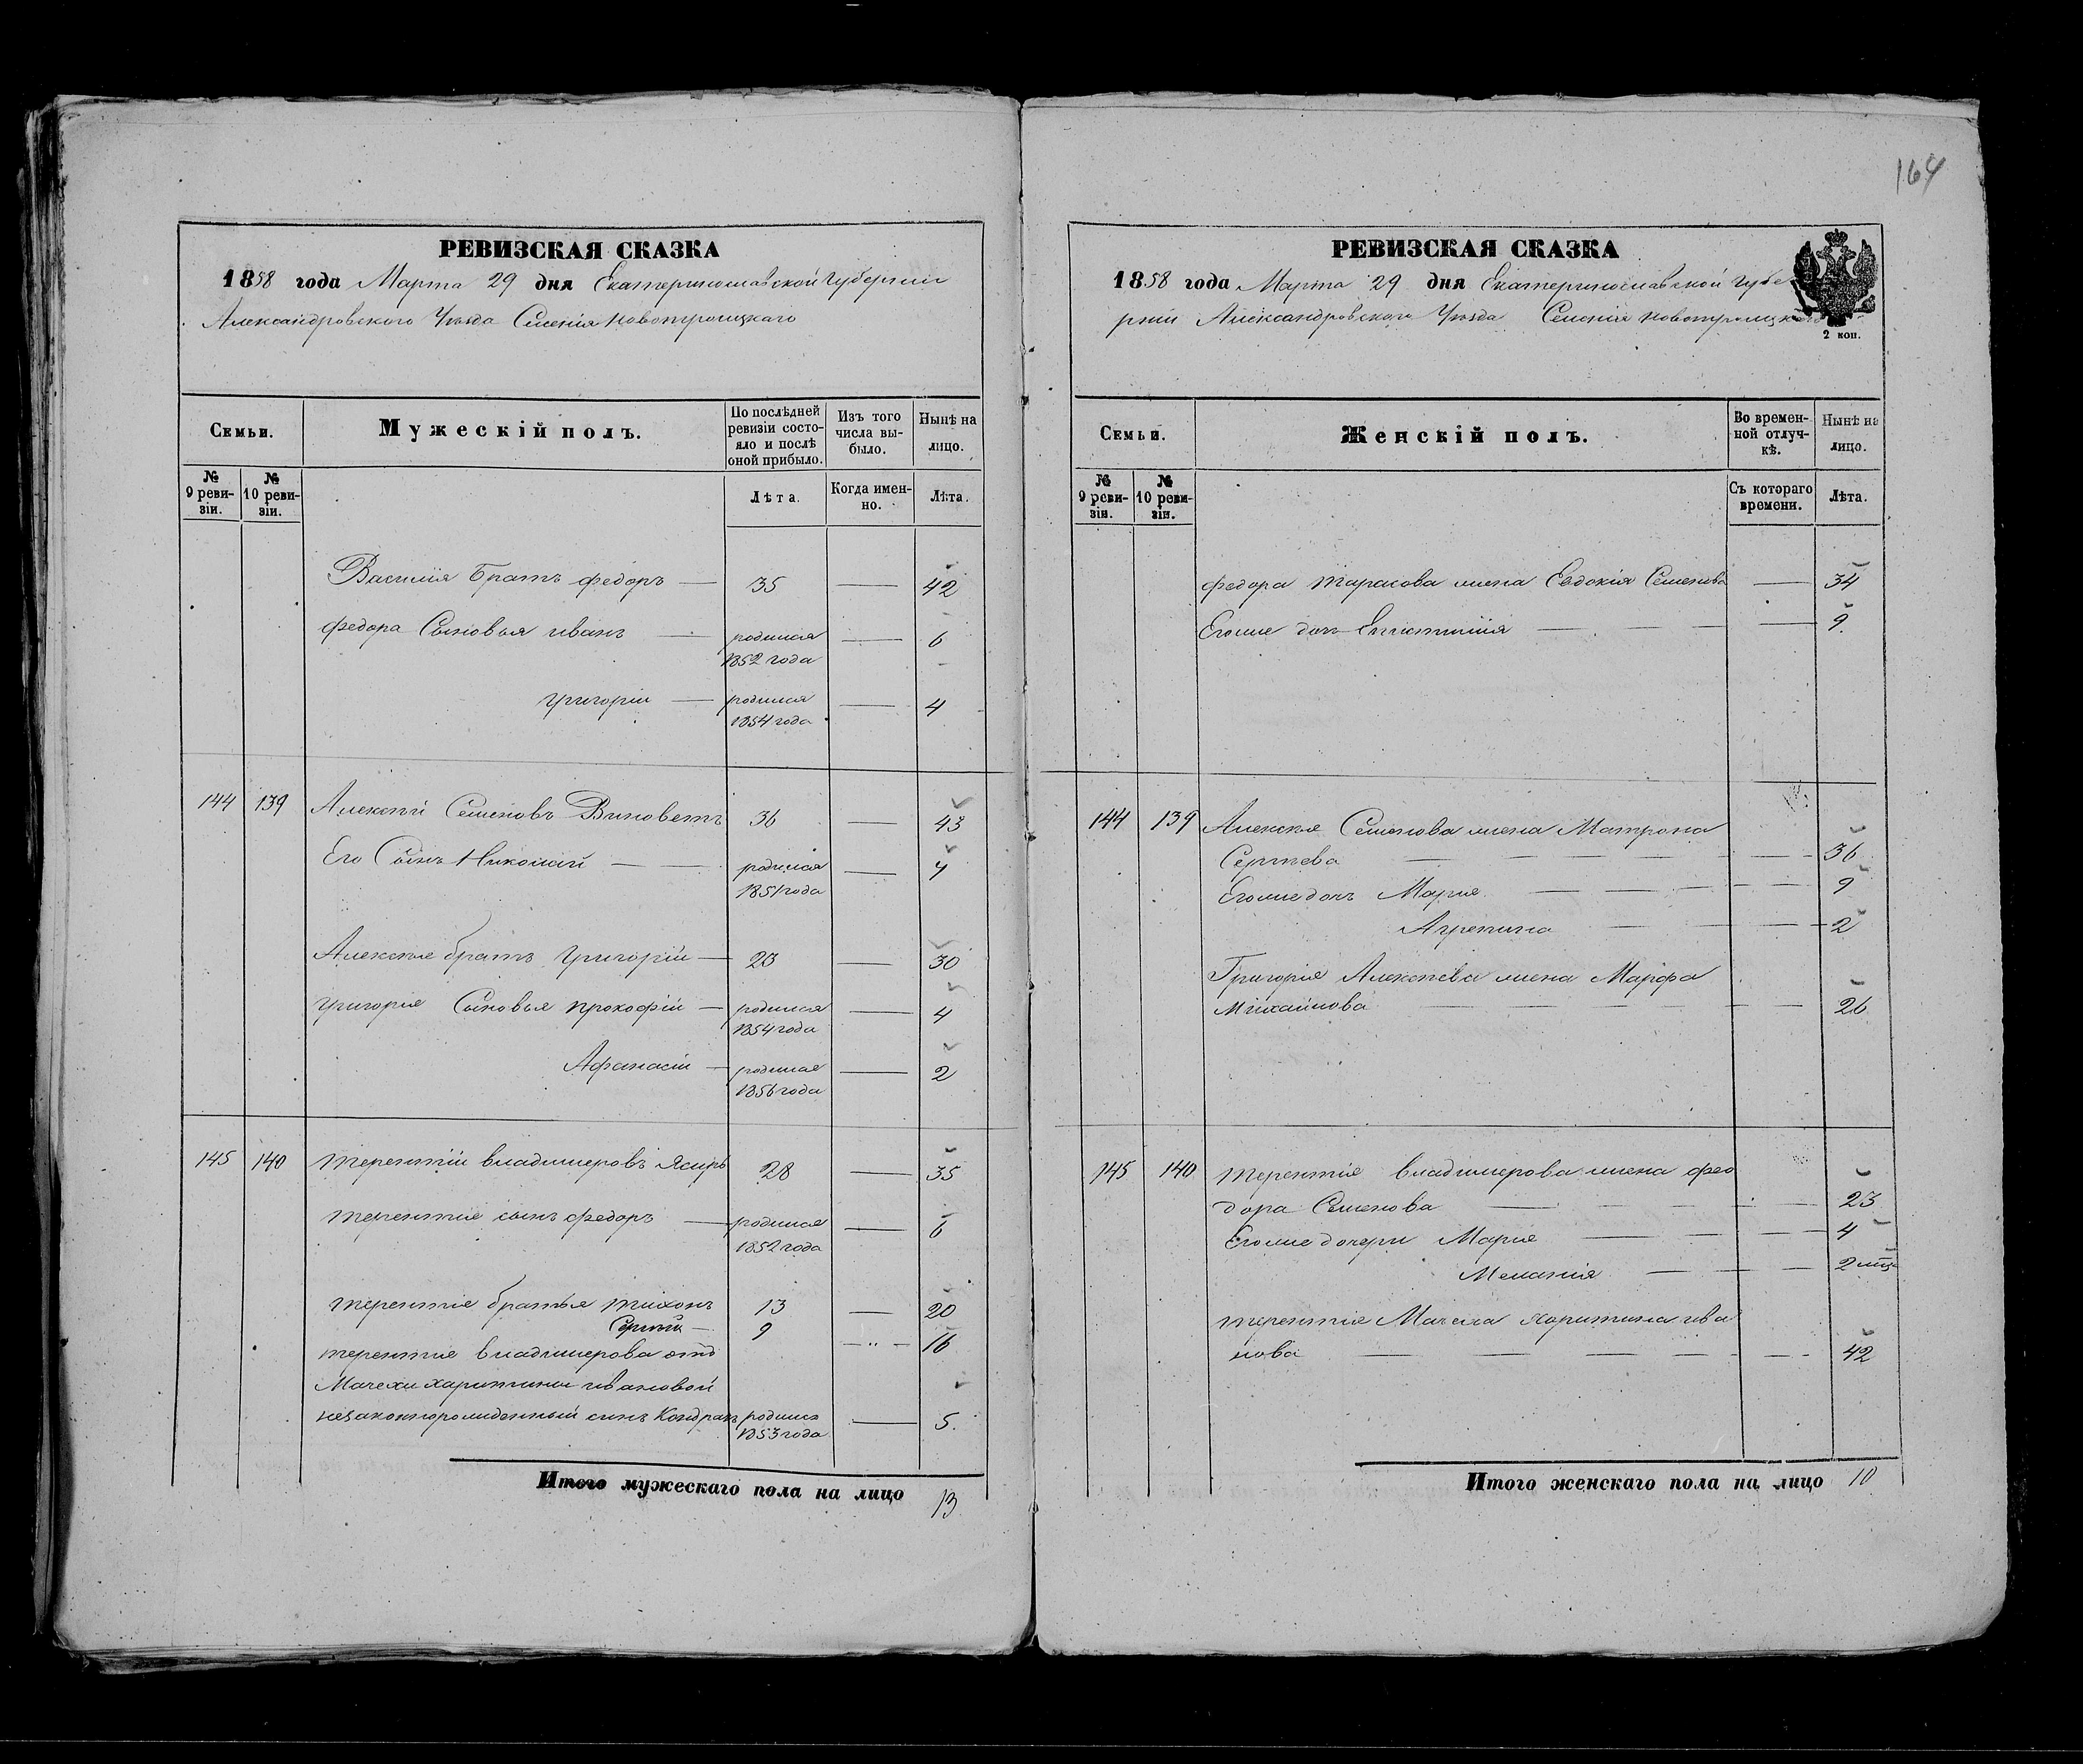 164
РЕВИЗСКАЯ СКАЗКА
1858 года Марта 29 дня Екатеринославской Губернии
Александровского Уѣзда Селенія Новотроицкаго
Семьи.
Мужескій полъ.
По послѣдней ревизіи состояло и послѣ оной прибыло.
Изъ того числа выбыло.
Нынѣ на лицо.
№ 9 ревизіи.
№ 10 ревизіи.
Лѣта.
Когда именно.
Лѣта.
Василія Братъ федоръ — 35 — 42
федора Сыновья иванъ — родился 1852 года — 6
григорій — родился 1854 года — 4
144 139 Алексѣй Семеновъ Виноветъ 36 — 43
Его Сынъ Николай — родился 1851 года — 7
Алексѣя братъ григорій — 23 — 30
григорія Сыновья прокофій — родился 1854 года — 4
Афанасій — родился 1856 года — 2
145 140 терентій владимеровъ 28 — 35
терентія сынъ федоръ — родился 1852 года — 6
терентія братья тихонъ 13 — 20
Сергѣй — 9 — " — 16
терентія владимерова отъ
Мачехи харитины ивановой
незаконнорожденный сынъ Кондратъ родился 1853 года — 5.
Итого мужескаго пола на лицо 13
РЕВИЗСКАЯ СКАЗКА
1858 года Марта 29 дня Екатеринославской Губе
рніи Александровского Уѣзда Селенія Новотроицкаго
2 коп.
Семьи.
Женскій полъ.
Во временной отлучкѣ.
Нынѣ на лицо.
№ 9 ревизіи.
№ 10 ревизіи.
Съ котораго времени.
Лѣта.
федора тарасова жена Евдокія Семенова — 34
Егоже доч Епистимія — — — 9.
144 139 Алексѣя Семенова жена Матрона
Сергѣева — — — 36
Егоже дочь Марія — — — 9
Агрепина — — — 2
Григорія Алексѣева жена Марфа
Михайлова — — — 26
145 140 терентія владимерова жена фео
дора Семенова — — — 23
Егоже дочери Марія — — — 4
Меланія — — — 2 мца
терентія Мачеха харитина ива
нова — — — 42
Итого женскаго пола на лицо 10